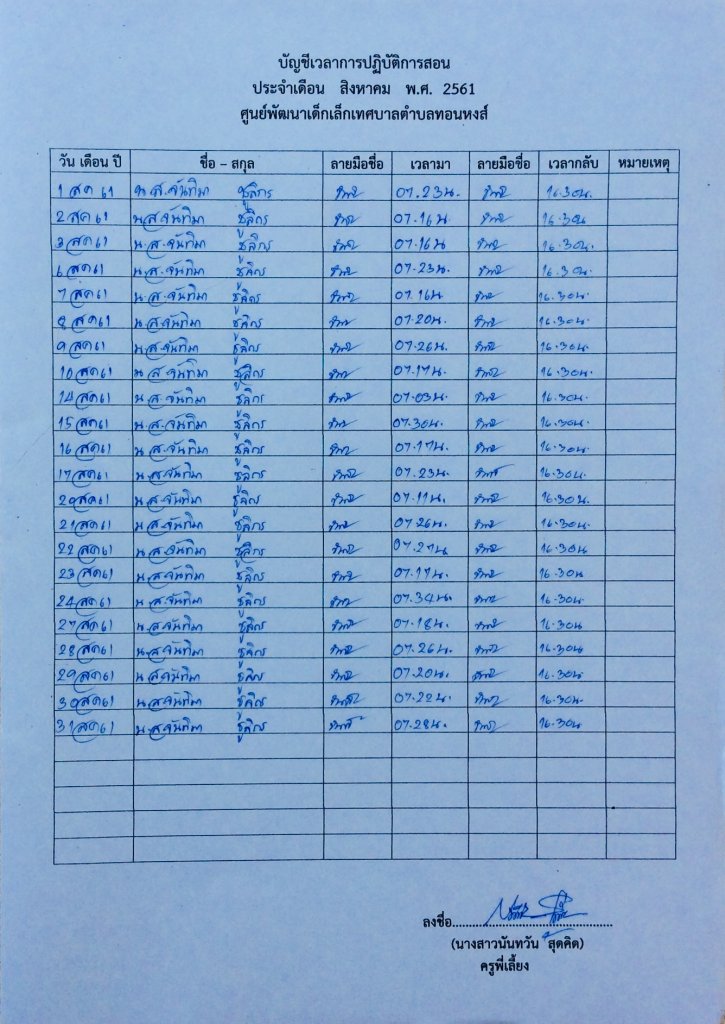 บัญชีเวลาการปฏิบัติการสอน
ประจำเดือน สิงหาคม พ.ศ. 2561
ศูนย์พัฒนาเด็กเล็กเทศบาลตำบลทอนหงส์
วัน เดือน ปี ชื่อ – สกุล ลายมือชื่อ เวลามา ลายมือชื่อ เวลากลับ หมายเหตุ
1 สค 61 น.ส.จันทิมา ชูลิกร 07.23น. 16.30น.
2 สค 61 น.ส.จันทิมา ชูลิกร 07.16น. 16.30น.
3 สค 61 น.ส.จันทิมา ชูลิกร 07.16น 16.30น.
6 สค 61 น.ส.จันทิมา ชูลิกร 07.23น. 16.30น.
7 สค 61 น.ส.จันทิมา ชูลิกร 07.16น 16.30น.
8 สค 61 น.ส.จันทิมา ชูลิกร 07.20น. 16.30น.
9 สค 61 น.ส.จันทิมา ชูลิกร 07.26น. 16.30น.
10 สค 61 น.ส.จันทิมา ชูลิกร 07.17น. 16.30น.
14 สค 61 น.ส.จันทิมา ชูลิกร 07.03น. 16.30น.
15 สค 61 น.ส.จันทิมา ชูลิกร 07.30น. 16.30น.
16 สค 61 น.ส.จันทิมา ชูลิกร 07.17น. 16.30น.
17 สค 61 น.ส.จันทิมา ชูลิกร 07.23น. 16.30น.
20 สค 61 น.ส.จันทิมา ชูลิกร 07.11น. 16.30น.
21 สค 61 น.ส.จันทิมา ชูลิกร 07.26น. 16.30น.
22 สค 61 น.ส.จันทิมา ชูลิกร 07.27น. 16.30น.
23 สค 61 น.ส.จันทิมา ชูลิกร 07.17น. 16.30น
24 สค 61 น.ส.จันทิมา ชูลิกร 07.34น. 16.30น.
27 สค 61 น.ส.จันทิมา ชูลิกร 07.18น. 16.30น
28 สค 61 น.ส.จันทิมา ชูลิกร 07.26น. 16.30น.
29 สค 61 น.ส.จันทิมา ชูลิกร 07.20น. 16.30น
30 สค 61 น.ส.จันทิมา ชูลิกร 07.22น. 16.30น
31 สค 61 น.ส.จันทิมา ชูลิกร 07.28น. 16.30น
ลงชื่อ
(นางสาวนันทวัน สุดคิด)
ครูพี่เลี้ยง